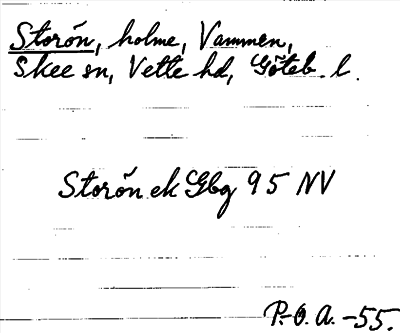 Storön, holme, Vammen,
Skee sn, Vette hd, Göteb. l.
Storön ek Gbg 95 NV
P.-O.A. -55.